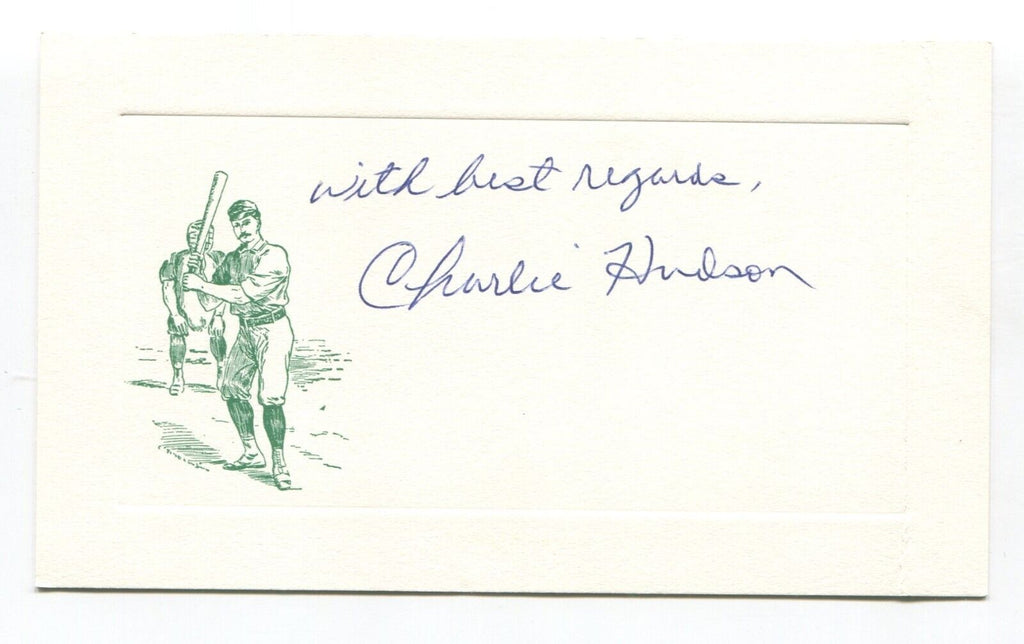 with best regards,
Charlie Hudson